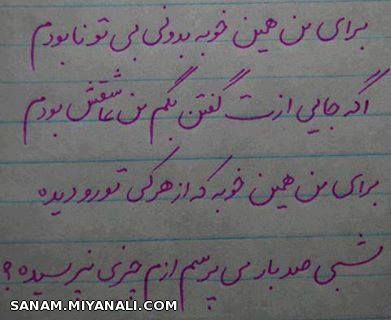 برای من همین خوبه بدونی بی تو نابودم
اگه جایی ازت گفتن بگم من عاشقش بودم
برای من همین خوبه که از هرکی تو رو دیده
شبی صد بار می پرسم ازم چیزی نپرسیده؟
SANAM.MIYANALI.COM